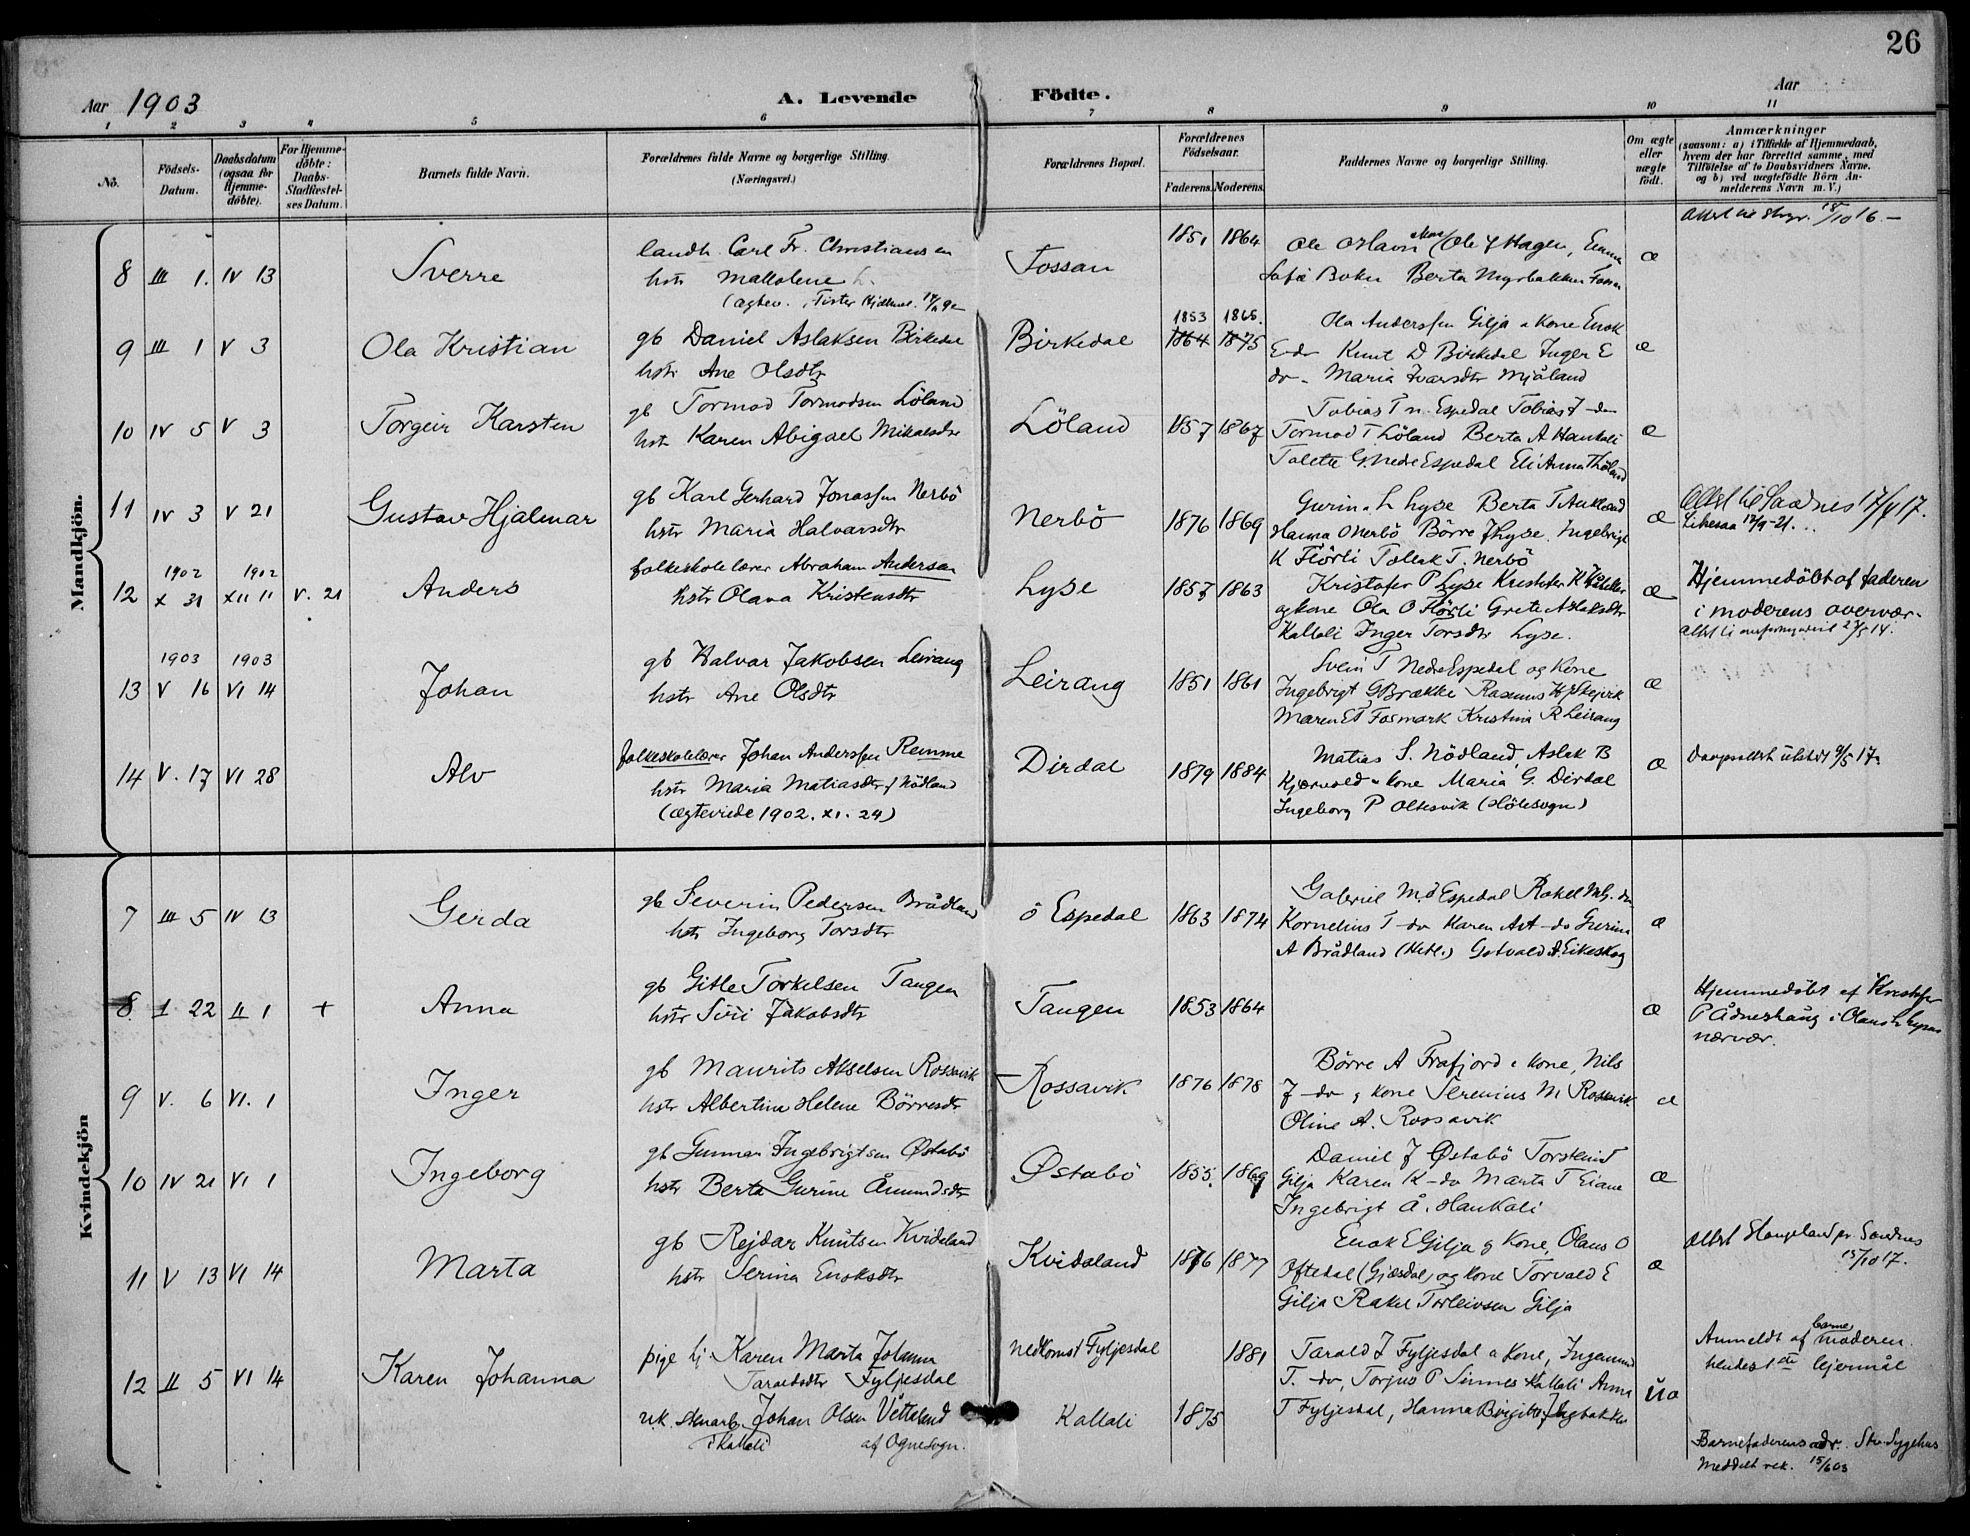 26
Aar 1903
A. Levende Födte.
Aar
1 2 3 4 5 6 7 8 9 10 11
No.
Födsels-Datum.
Daabsdatum (ogsaa for Hjemme-döbte).
For Hjemme-döbte: Daabs-Stadfæstel-ses Datum.
Barnets fulde Navn.
Forældrenes fulde Navne og borgerlige Stilling. (Næringsvei.)
Forældrenes Bopæl.
Forældrenes Födselsaar.
Faderens. Moderens.
Faddernes Navne og borgerlige Stilling.
Om ægte eller uægte födt.
Anmærkninger
(saasom: a) i Tilfælde af Hjemmedaab, hvem der har forrettet samme, med Tilföielse af to Daabsvidners Navne. og b) ved uægtefödte Börn An-melderens Navn m. V.)
Mandkjön.
8 III 1. IV 13 Sverre
landh. Carl Fr. Christiansen
hstr
Fossan 1851 1864
æ
18/10 16.
9 III 1 V 3 Ola Kristian
gb Daniel Aslaksen Birkedal
hstr Ane Olsdtr
Birkedal 1853 1865.
1864 1875
Ola Anderssen Gilja a Kone Enok
E do Knut D Birkedal Inger E
do - Maria Ivarsdtr Mjåland
æ
10 IV 5 V 3 Torgeir Karsten
gb Tormod Tormodsen Löland
hstr Karen Abigael Mikalsdtr
Löland 1857 1867
Tobias T n. Espedal Tobias J do
Tormod T Löland Berta A Haukali
Talette G. Nedre Espedal Eli Anna T Löland
æ
11 IV 3 V 21 Gustav Hjalmar
gb Karl Gerhard Jonassen Nerbö
hstr Maria Halvarsdtr
Nerbö 1876 1869
Gurina L Lyse Berta T Aukland
Hanna O Nerbö Börre J Lyse. Ingebrigt
K Flörli Tollak T. Nerbö
æ
Attest til Sandnes 17/4 17.
12 1902 X 31 1902 XII 11 V. 21 Anders
folkeskolelærer Abraham Andersen
hstr Olava Kristensdtr
Lyse 1857 1863
Kristofer P Lyse Kristofer K
og kone Ola O Flörli Grete Aslaksdtr
Kallali Inger Torsdtr Lyse.
æ
Hjemmedöbt af faderen
i moderens overvær.
13 1903 V 16 1903 VI 14 Johan
gb Halvar Jakobsen Leirang
hstr Ane Olsdtr
Leirang 1851 1861
Svein T Nedre Espedal og Kone
Ingebrigt G Brække Rasmus H Skjpvik
Maren E T Fosmark Kristina R Leirang
æ
14 V. 17 VI 28 Alv
folkeskolelærer Johan Anderssen Remme
hstr Maria Matiasdtr f Nödland
(ægteviede 1902. XI. 24)
Dirdal 1879 1884
Matias S. Nödland, Aslak B
Kjærvold a kone Maria G. Dirdal
Ingeborg P Oltesvik (Hölesogn)
æ
Daapsattest utstedt 9/5 17.
Kvindekjön
7 III 5 IV 13 Gerda
gb Severin Pedersen Brådland
hstr Ingeborg Torsdtr
ö Espedal 1863 1874
Gabriel M. ö Espedal Rakel M G. do
Kornelius T - do Karen A T - do Gurina
A Brådland (Hetl.) Gotvald A. Eikeskog
æ
8. I 22 II 1 + Anna
gb Gitle Torkelsen Tangen
hstr Siri Jakobsdtr
Tangen 1853 1864
æ
Hjemmedöbt af Kristofer
P Ådneshaug i
nærvær.
9 V. 6 VI. 1 Inger
gb Maurits Akselsen Rossavik
hstr Albertine Helene Börresdtr
Rossavik 1876 1878
Börre A Frafjord a kone, Nils
J - do g kone Serenius M Rossavik
Oline A. Rossavik
æ
10 IV 21 VI 1 Ingeborg
gb Gunnar Ingebrigtsen Østabö
hstr Berta Gurine Åmundsdtr
Østabö 1855. 1869
Daniel J Østabö Torstein T
Gilja Karen K - do Marta T Eiane
Ingebrigt Å. Haukali
æ
11 V 13 VI 14 Marta
gb Rejdar Knutsen Kvidaland
hstr Serina Enoksdtr
Kvidaland 1876 1877
Enok E Gilja g Kone, Olaus O
Oftedal (Gjesdal) og kone Torvald E
Gilja Rakel Torleivsen Gilja
æ
Attest Haugeland pr Sandnes
15/10 17.
12 II 5 VI 14 Karen Johanna
pige hj Karen Marta Johanna
Taraldsdtr Fyljesdal
u.k. stenarb. Johan Olsen Vetteland
i Kallali af Ognesogn.
nedkomst Fyljesdal 1881
Kallali 1875
Tarald J Fyljesdal a Kone, Ingemund
T. - do, Torjus P Sinnes Kallali Anna
T Fyljesdal, Hanna Birgitte
uæ
Anmeldt af barnemoderen.
hendes 1ste lejermål
Barnefaderens adr. Stv. Sygehus
Meddelt rek. 15/6 03